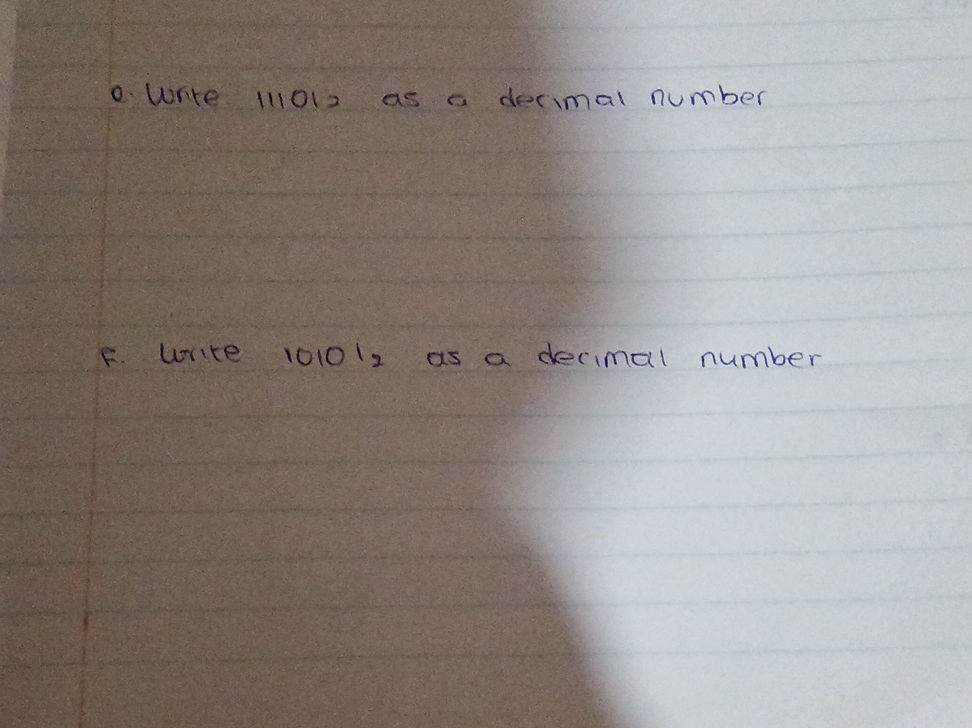 e. Write 11101₂ as a decimal number
F. Write 10101₂ as a decimal number